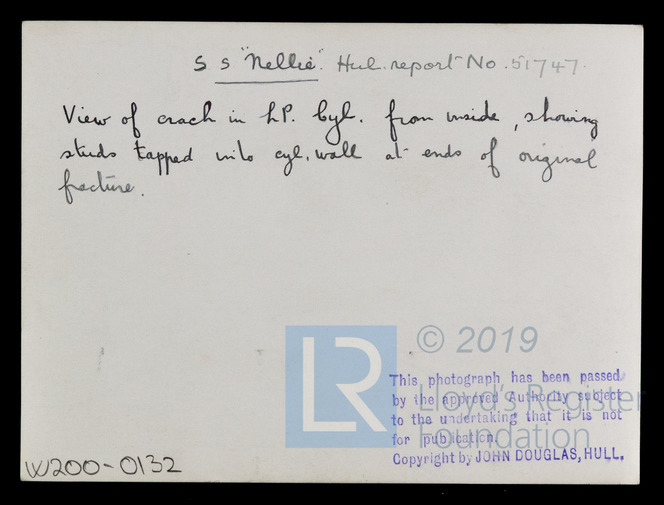 S S "Nellie". Hul. report No. 51747.
View of crack in L.P. Cyl. from inside, showing
studs tapped into cyl. wall at ends of original
fracture.
LR
© 2019
Lloyd's Register
Foundation
This photograph has been passed
by the approved Authority subject
to the undertaking that it is not
for publication.
Copyright by JOHN DOUGLAS, HULL.
W200-0132